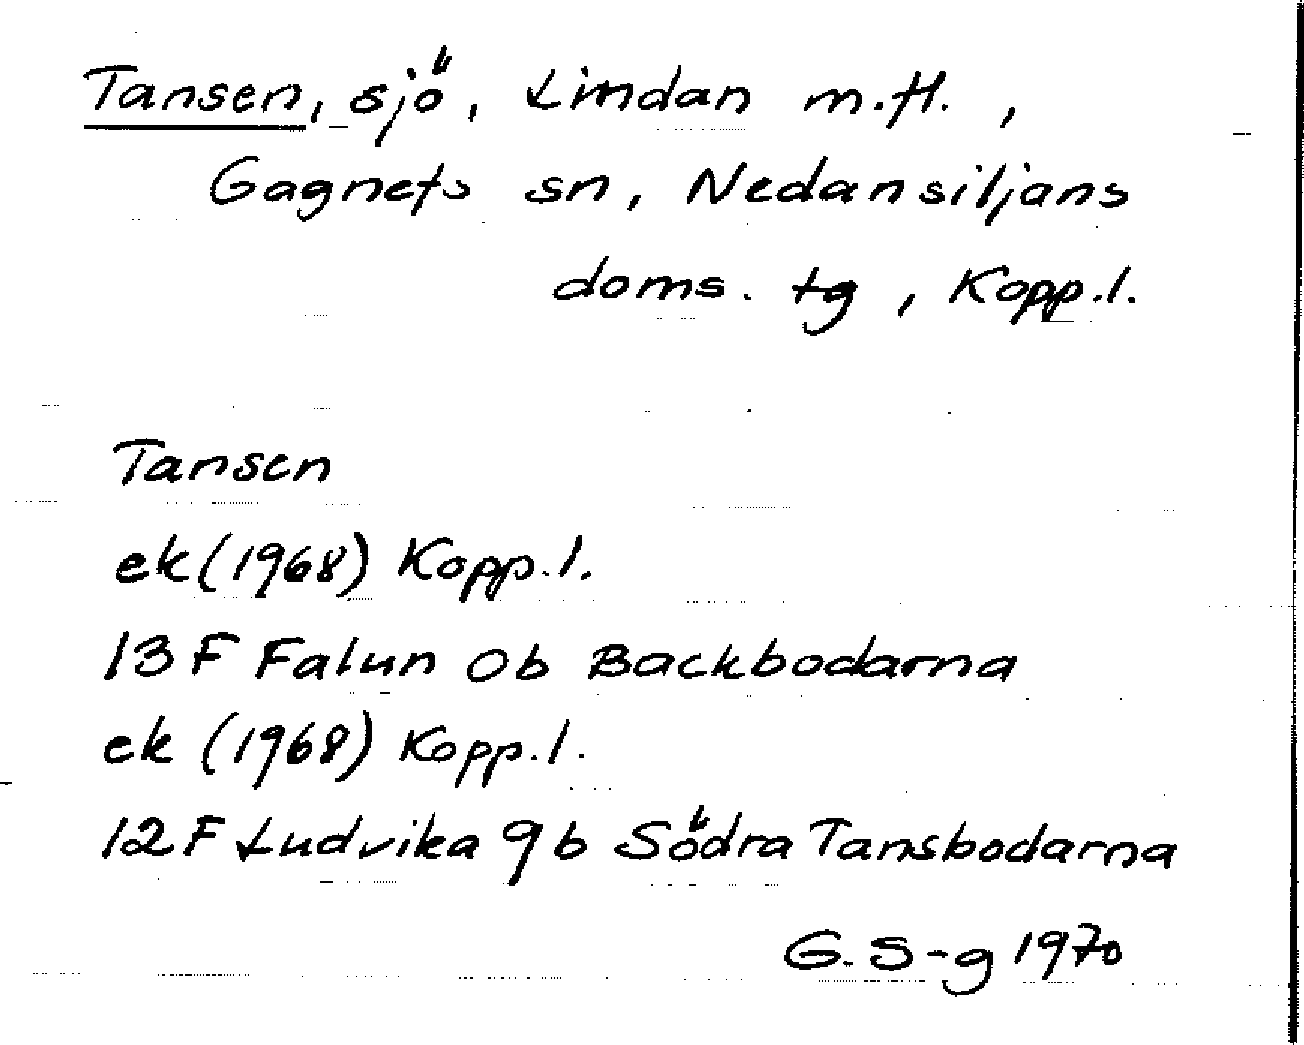 Tansen, sjö, Lindan m.fl.,
Gagnefs sn, Nedansiljans
doms. tg, Kopp.l.
Tansen
ek (1968) Kopp.l.
13 F Falun 0b Backbodarna
ek (1968) Kopp.l.
12 F Ludvika 9 b Södra Tansbodarna
G. S-g 1970